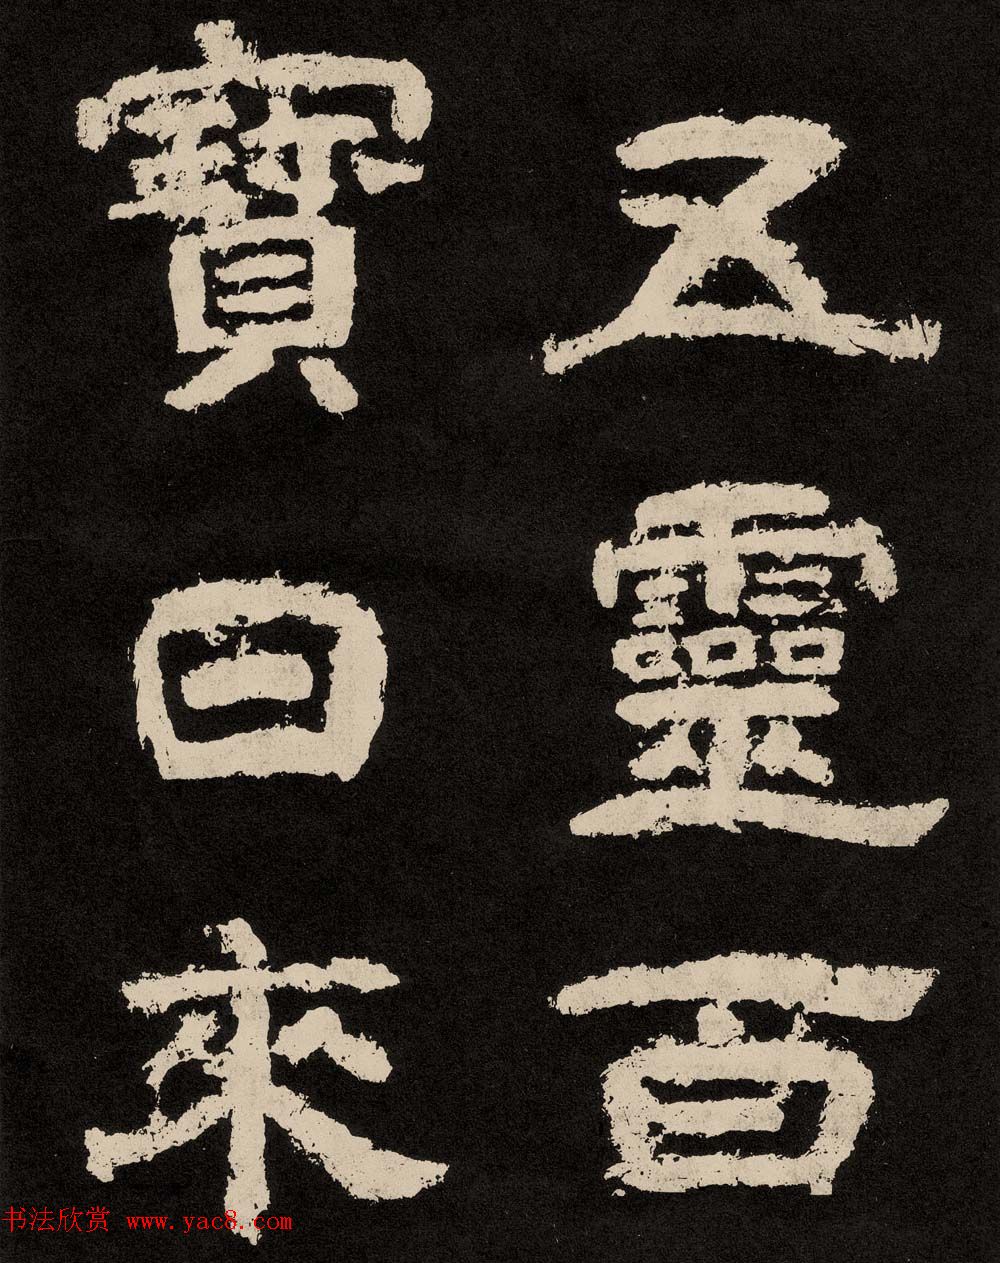 五靈百
寶日來
书法欣赏 www.yac8.com